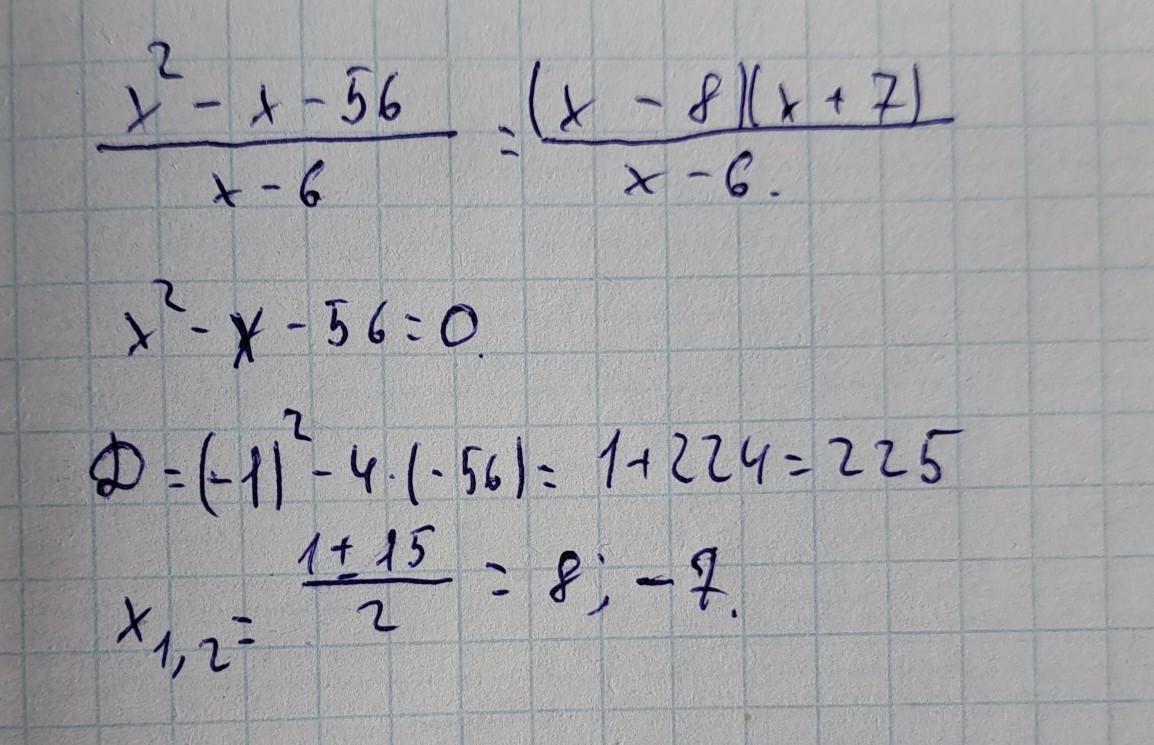 x² - x - 56 / x - 6 = (x - 8)(x + 7) / x - 6.
x² - x - 56 = 0.
D = (-1)² - 4·(-56) = 1 + 224 = 225
x₁,₂ = 1 ± 15 / 2 = 8; -7.